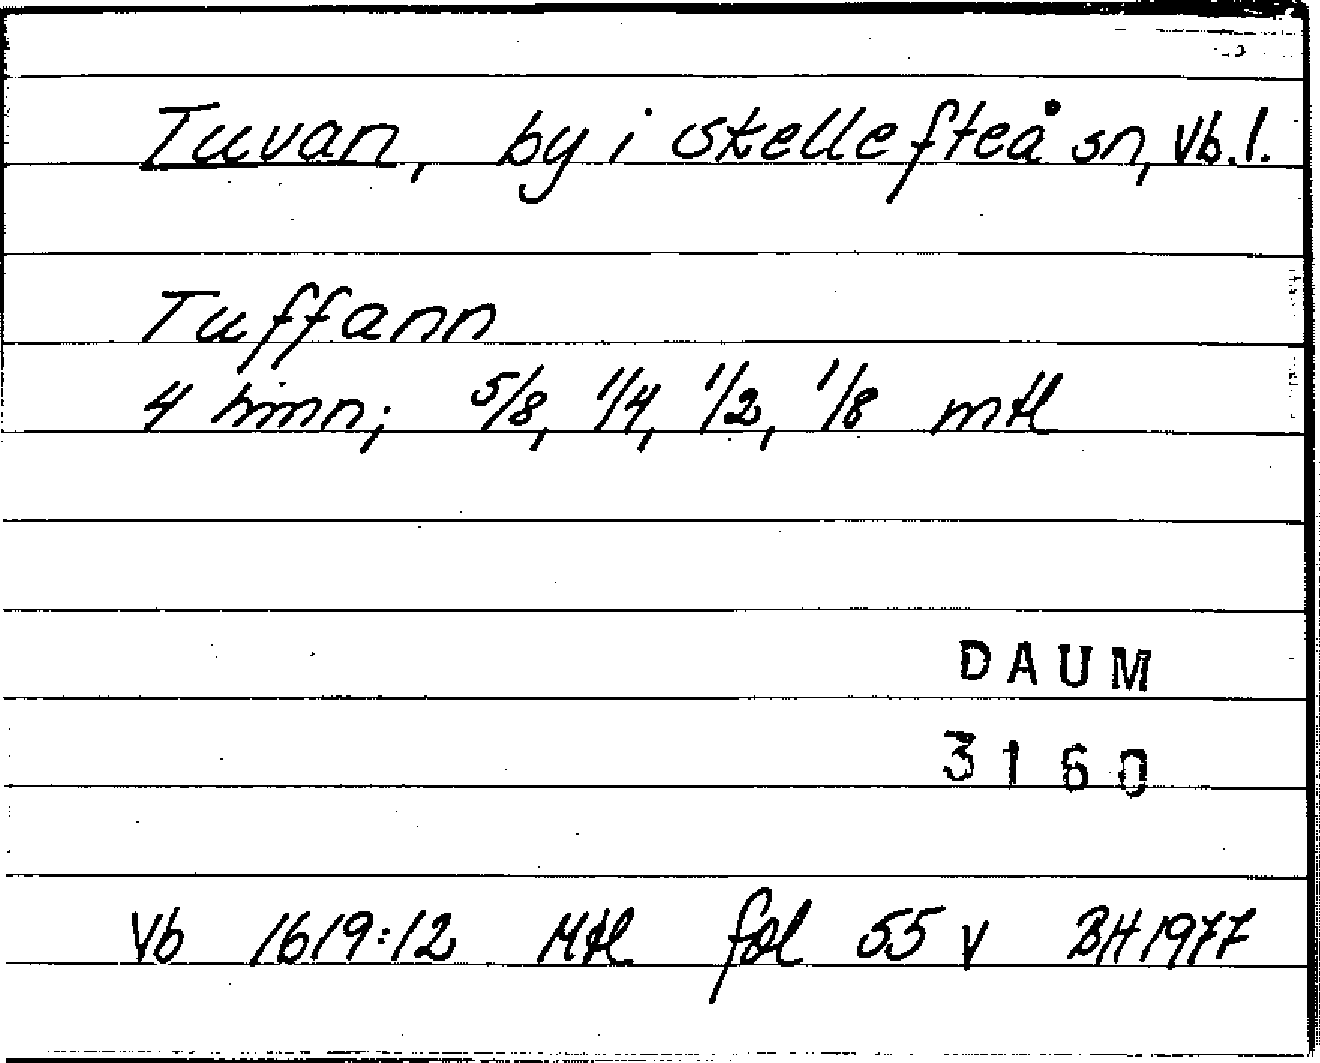 Tuvan, by i Skellefteå sn, Vb. l.
Tuffann
4 hmn; 5/8, 1/4, 1/2, 1/8 mtl
DAUM
3160
Vb 1619:12 Mtl fol 55 v BH 1977